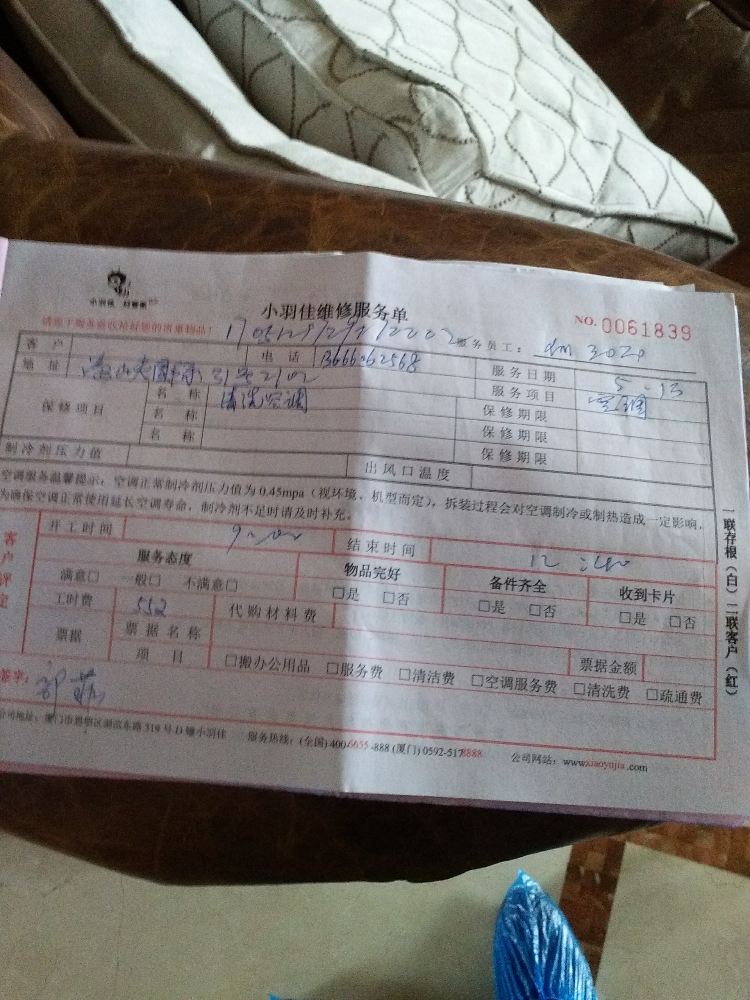 小羽佳 好管家
小羽佳维修服务单
NO. 0061839
请您于服务验收后
服务员工: dm 3020
客户 电话 13666062568 服务日期 5.13
地址 服务项目 空调
保修项目 名称 清洗空调 保修期限
名称 保修期限
名称 保修期限
制冷剂压力值 出风口温度
空调服务温馨提示:空调正常制冷剂压力值为0.45mpa(视环境、机型而定),拆装过程会对空调制冷或制热造成一定影响,
为确保空调正常使用延长空调寿命,制冷剂不足时请及时补充。
客户评定
开工时间 9:00 结束时间 12:40
服务态度 物品完好 备件齐全 收到卡片
满意□ 一般□ 不满意□ □是 □否 □是 □否 □是 □否
工时费 552 代购材料费
票据 票据名称 票据金额
项目 □搬办公用品 □服务费 □清洁费 □空调服务费 □清洗费 □疏通费
签字:
公司地址:厦门市思明区湖滨东路319号D幢小羽佳 服务热线:(全国)4006655-888(厦门)0592-5178888 公司网站:www.xiaoyujia.com
一联存根(白)二联客户(红)